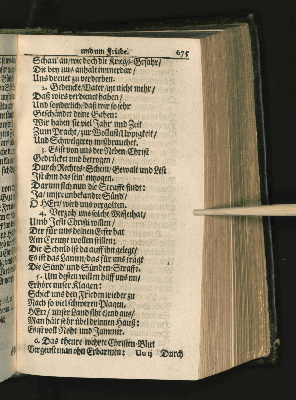 und um Friede. 675
Schau an/wie doch die Kriegs-Gefahr/
Die bey uns anhält immerdar/
Uns dreuet zu verderben.
2. Gedencke/Vater/itzt nicht mehr/
Daß wirs verdienet haben/
Und sonderlich/daß wir so sehr
Geschändet deine Gaben:
Wir haben sie viel Jahr und Zeit
Zum Pracht/zur Wollust/Uppigkeit/
Und Schwelgerey mißbrauchet.
3. Es ist von uns der Neben-Christ
Gedrücket und betrogen/
Durch Rechtes-Schein/Gewalt und List
Ist ihm das sein' entzogen.
Darum sich nun die Straffe findt:
Ja/unser unbekandte Sünd/
O HErr/wird uns vergolten.
4. Verzeih uns solche Missethat/
Umb JEsu Christi willen/
Der für uns deinen Eyfer hat
Am Creutze wollen stillen:
Die Schuld ist da auff ihn gelegt/
Es ist das Lamm/das für uns trägt
Die Sünd' und Sünden-Straffe.
5. Um dessen willen hilff uns nu/
Erhöre unser Klagen:
Schick uns den Frieden wieder zu
Nach so viel schweren Plagen.
HErr/unser Land siht elend aus/
Man hält sehr übel drinnen Hauß:
Es ist voll Noht und Jammer.
6. Das theure wehrte Christen-Blut
Vergeust man ohn Erbarmen: Uu ij Durch